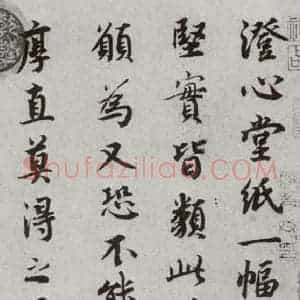 澄心堂纸一幅
堅實皆類此
頋為又恐不能
厚直莫得之
Shufazilian